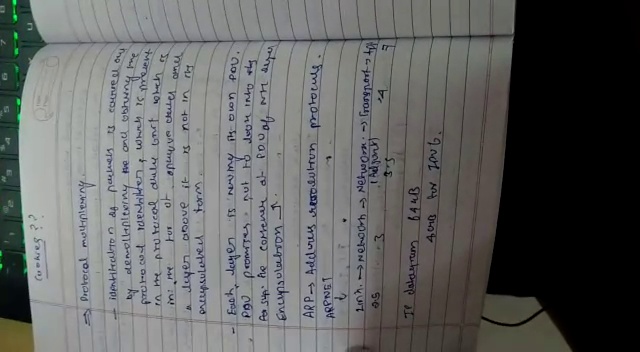 Cookies ??
→ Protocol multiplexing.
- Identification of packets is carried out
by demultiplexing the and observing the
protocol identifier, which is present
in the protocol data unit which is
in the for of opaque data and
a layer above it is not in its
encapsulated form.
- Each layer is having its own PDU.
PDU promises not to look into
the contents of PDU of
Encapsulation
ARP → Address resolution protocols.
ARPNET
Link → Network → Network → Transport → App
(Adjunct)
2.5 3 3.5 4 7
IP datagram 64KB
4GB for IPv6.